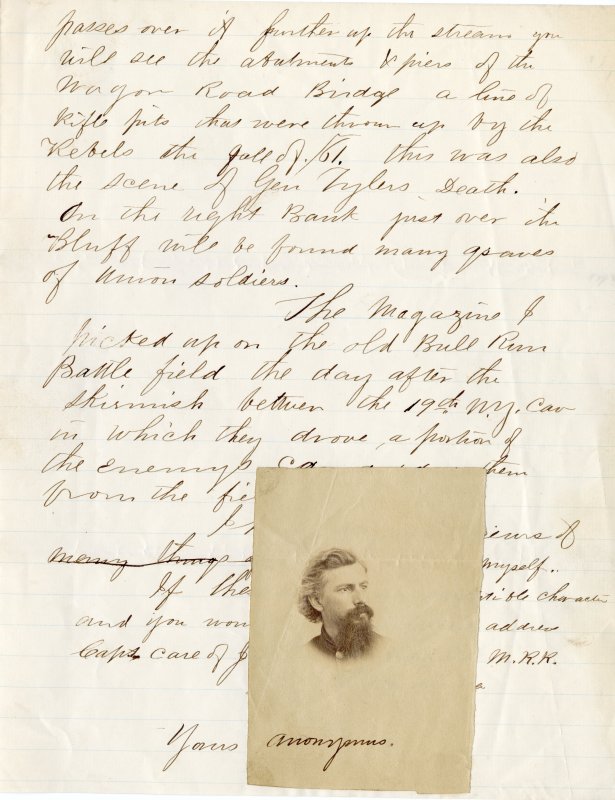 passes over it further up the stream you
will see the abutments & piers of the
Wagon Road Bridge a line of
Rifle pits that were thrown up by the
Rebels the fall of /61. this was also
the scene of Gen Tylers Death.
On the right Bank just over the
Bluff will be found many graves
of Union soldiers.
The Magazine I
picked up on the old Bull Run
Battle field the day after the
skirmish between the 19th N.Y. Cav
in which they drove a portion of
the enemys them
from the fie
I
many things myself.
If the character
and you wou address
Capt care of J M.R.R.
Yours anonymus.